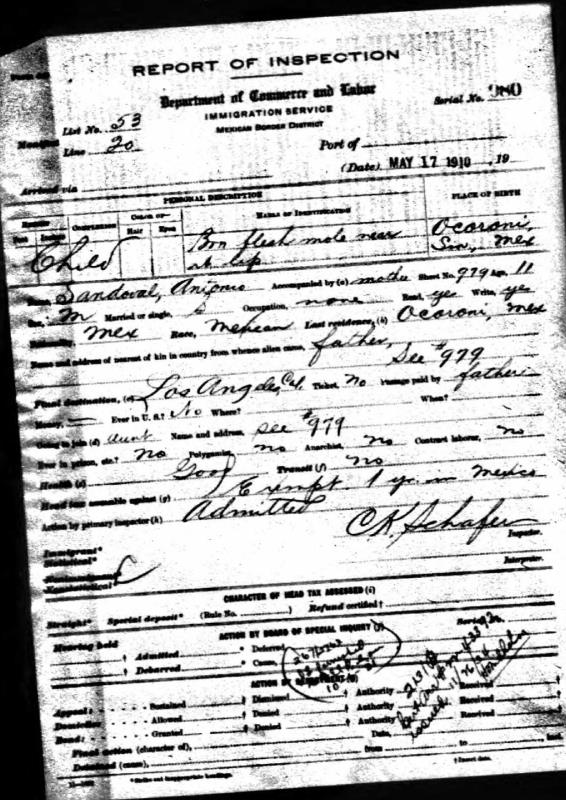 REPORT OF INSPECTION
Department of Commerce and Labor
IMMIGRATION SERVICE
MEXICAN BORDER DISTRICT
Serial No. 980
List No. 53
Line 20
Port of
(Date) MAY 17 1910, 19
Arrived via
PERSONAL DESCRIPTION
PLACE OF BIRTH
COMPLEXION
COLOR OF—
Hair Eyes
MARKS OF IDENTIFICATION
Feet Inches
Child
Brn flesh mole near
rt lip
Ocoroni,
Sin, Mex
Name, Sandoval, Antonio Accompanied by (a) mother Sheet No. 979 Age, 11
Sex, M Married or single, S Occupation, none Read, yes Write, yes
Nationality, Mex Race, Mexican Last residence, (b) Ocoroni, Mex
Name and address of nearest of kin in country from whence alien came, father,
See #979
Final destination, (c) Los Angeles, Cal. Ticket, No Passage paid by father
Money, — Ever in U. S.? No Where? When?
Going to join (d) aunt Name and address, see #979
Ever in prison, etc.? No Polygamist, no Anarchist, No Contract laborer, no
Health (e) Good Transit (f) No
Head tax assessable against (g) Exempt 1 yr. in Mexico
Action by primary inspector (h) Admitted
C K Schafer
Inspector.
Immigrant*
Statistical*
Nonimmigrant*
Nonstatistical*
Interpreter.
CHARACTER OF HEAD TAX ASSESSED (i)
Straight* Special deposit* (Rule No. ) Refund certified †
ACTION BY BOARD OF SPECIAL INQUIRY (j)
Hearing held † Admitted * Deferred
† Debarred * Cause,
ACTION BY DEPARTMENT (k)
Appeal: Sustained † Dismissed † Authority Received †
Allowed † Denied † Authority Received †
Bond: Granted † Denied † Authority Received †
Date,
Final action (character of), from to , incl.
Detained (cause),
* Strike out inappropriate headings.
† Insert date.